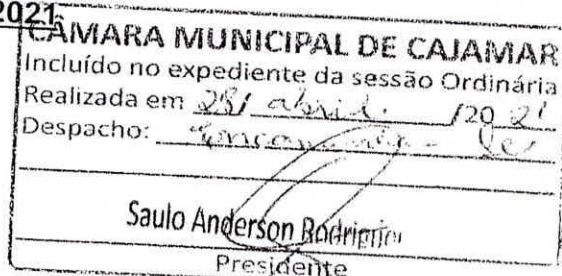 2021
CÂMARA MUNICIPAL DE CAJAMAR
Incluído no expediente da sessão Ordinária
Realizada em 28/ abril /20 21
Despacho: Encaminha-se
Saulo Anderson Rodrigues
Presidente